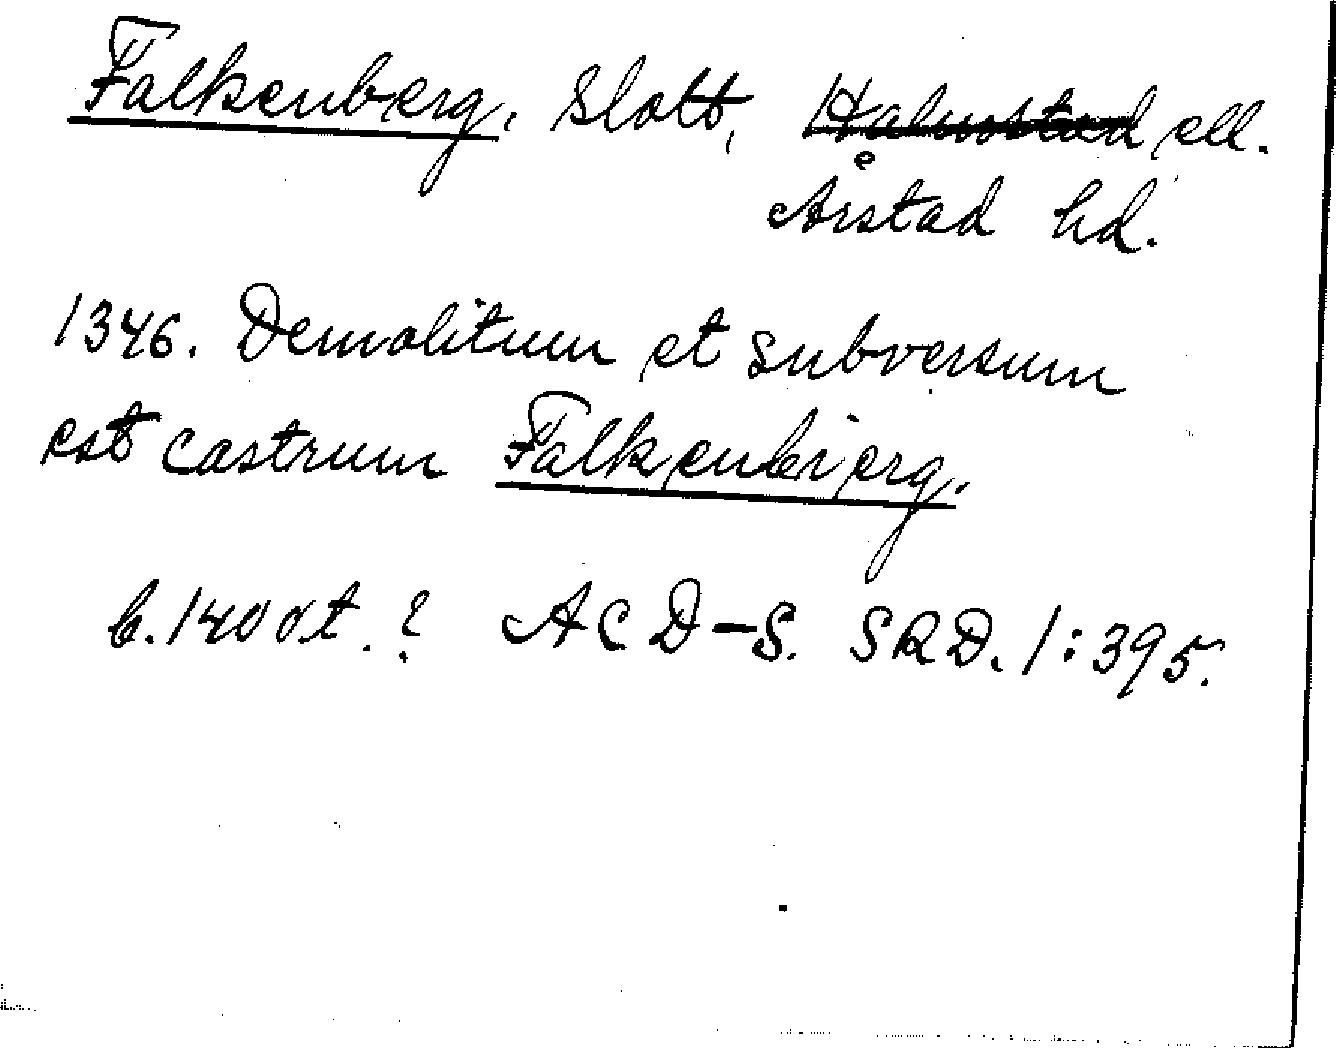 Falkenberg, Slott, Halmstad ell.
Årstad hd.
1346. Demolitum et subversum
est castrum Falkenbierg.
b. 1400 t. ? ACD-S. SRD. 1:395.